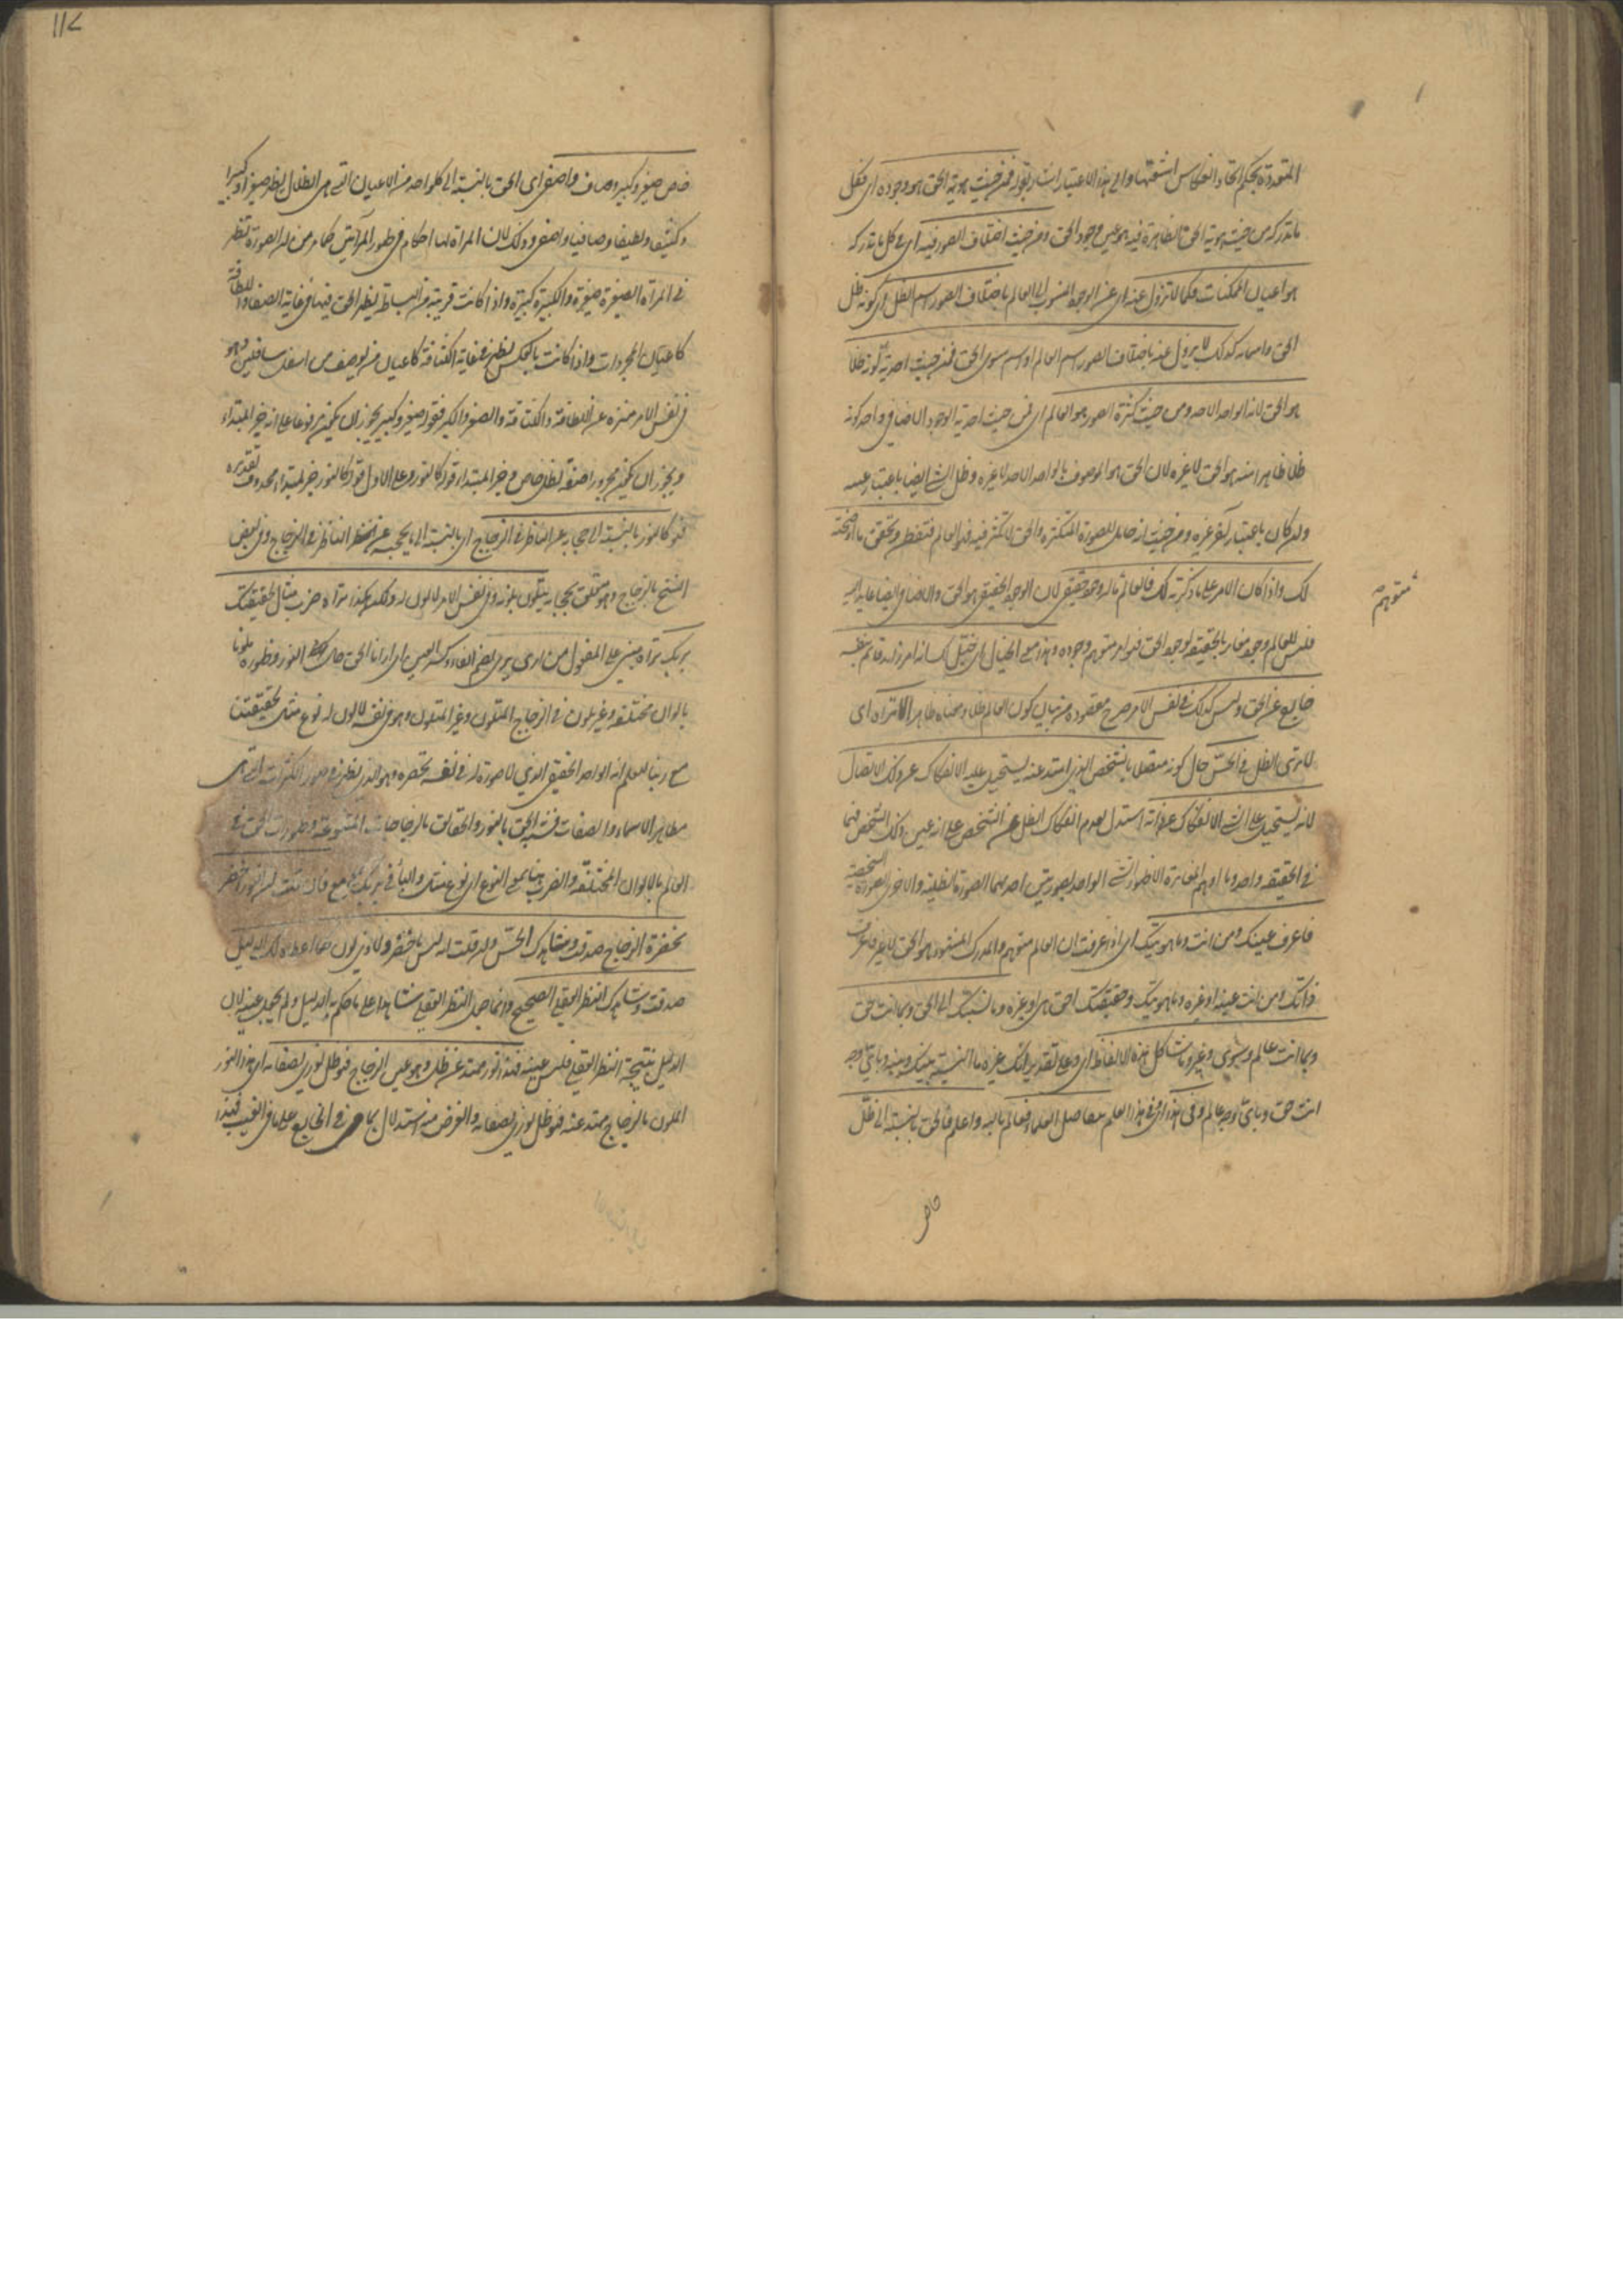 المتعددة بحكم اتحاد انعكاس اشعتها والى هذا الاعتبار اشار بقوله فمن حيث هوية الحق هو وجوده اى فكل
ما تدركه من حيث هوية الحق الظاهرة فيه هو عين وجود الحق ومن حيث اختلاف الصور فيه اى فى كل ما تدركه
هو اعيان الممكنات فكما لا يزول عنه اى عن الوجود المنسوب الى العالم باختلاف الصور اسم الظل اى كونه ظل
الحق واسمائه كذلك لا يزول عنه باختلاف الصور اسم العالم او اسم سوى الحق فمن حيث احدية كونه ظلا
هو الحق لانه الواحد الاحد ومن حيث كثرة الصور هو العالم اى فمن حيث احدية الوجود الاضافى واحد كونه
ظلا ظاهرا منه هو الحق لا غيره لان الحق هو الموصوف بالواحد الاحد لا غيره وظل الشئ ايضا باعتبار عينه
وان كان باعتبار آخر غيره ومن حيث انه حامل للصورة المتكثرة والحق لا تكثر فيه فهو العالم فتفطن وتحقق ما اوضحته
لك واذا كان الامر على ما ذكرته لك فالعالم ما له وجود حقيقى لان الوجود الحقيقى هو الحق والاضافى ايضا عايد اليه
متوهم
فليس للعالم وجود مغاير بالحقيقة لوجود الحق فهو امر متوهم وجوده وهذا معنى الخيال اى خيل لك انه امر زائد قائم بنفسه
خارج عن الحق وليس كذلك فى نفس الامر صرح مقصوده من بيان كون العالم ظلا ومعناه ظاهر الا تراه اى
الا ترى الظل فى الحس حال كونه متصلا بالشخص الذى امتد عنه يستحيل عليه الانفكاك عن ذلك الاتصال
لانه يستحيل على الشئ الانفكاك عن ذاته استدل بعدم انفكاك الظل عن الشخص على انه عين ذلك الشخص فهما
فى الحقيقة واحد وما اوهم المغايرة الا ظهور الشئ الواحد بصورتين احدهما الصورة الظلية والاخرى الصورة الشخصية
فاعرف عينك ومن انت وما هويتك اى اذا عرفت ان العالم متوهم والمدرك المشهود هو الحق لا غير فاعرف
ذاتك ومن انت عينه او غيره وما هويتك وحقيقتك احق هى او غيره وما نسبتك الى الحق وبما انت حق
وبما انت عالم وسوى وغير وما شاكل هذه الالفاظ اى وعلى تقدير انك غيره ما النسبة بينك وبينه وباى وجه
انت حق وباى وجه عالم وفى هذا اى فى هذا العلم يتفاضل العلماء فعالم بالله واعلم فالحق بالنسبة الى ظل
خاص
١١٧
خاص صغير وكبير وصاف واصفى اى الحق بالنسبة الى كل واحد من الاعيان التى هى الظلال يظهر صغيرا وكبيرا
وكثيفا ولطيفا وصافيا واصفى وذلك لان المرآة لها احكام فى ظهور المرآتى كما مر من ان الصورة تظهر
فى المرآة الصغيرة صغيرة والكبيرة كبيرة واذا كانت قريبة من البساطة يظهر الحق فيها فى غاية الصفاء واللطافة
كاعيان المجردات واذا كانت بالعكس يظهر فى غاية الكثافة كاعيان من يوصف من اسفل سافلين وهو
فى نفس الامر منزه عن اللطافة والكثافة والصغر والكبر فقوله صغير وكبير يجوز ان يكون مرفوعا على انه خبر المبتداء
ويجوز ان يكون مجرورا صفة لظل خاص وخبر المبتدا قوله كالنور وعلى الاول قوله كالنور خبر لمبتداء محذوف تقديره
فهو كالنور بالنسبة الى حجابه عن الناظر فى الزجاج اى بالنسبة الى ما يحجبه عن نظر الناظر فى الزجاج وفى بعض
النسخ بالزجاج وهو متعلق بحجابه يتلون بلونه وفى نفس الامر لا لون له ولكن هكذا تراه ضرب مثال لحقيقتك
بربك تراه مبنى على المفعول من ارى يرى بضم الفاء وكسر العين اى ارانا الحق حال النور وظهوره ملونا
بالوان مختلفة وغير ملون فى الزجاج المتلون وغير المتلون وهو فى نفسه لا لون له نوع مثال لحقيقتنا
مع ربنا لنعلم انه الواحد الحقيقى الذى لا صورة له فى نفسه تحصره وهو الذى يظهر فى صور الكثرات التى هى
مظاهر الاسماء والصفات فشبه الحق بالنور والحقائق بالزجاجات المتنوعة وظهورات الحق فى
العالم بالالوان المختلفة والضرب هنا بمعنى النوع اى نوع مثال والباء فى بربك بمعنى مع فان قلت ان النور اخضر
لخضرة الزجاج صدقت وشاهدك الحس وان قلت انه ليس باخضر ولا ذى لون لما اعطاه لك الدليل
صدقت وشاهدك النظر العقلى الصحيح وانما جعل النظر العقلى شاهدا على ما حكم به الدليل ولم يجعل عينه لان
الدليل نتيجة النظر العقلى فليس عينه فهذا نور ممتد عن ظل وهو عين الزجاج فهو ظل نورى لصفائه اى هذا النور
الملون بالزجاج ممتد عنه فهو ظل نورى لصفائه والغرض منه استدلال بما هو فى الخارج على ما فى الغيب فهذا